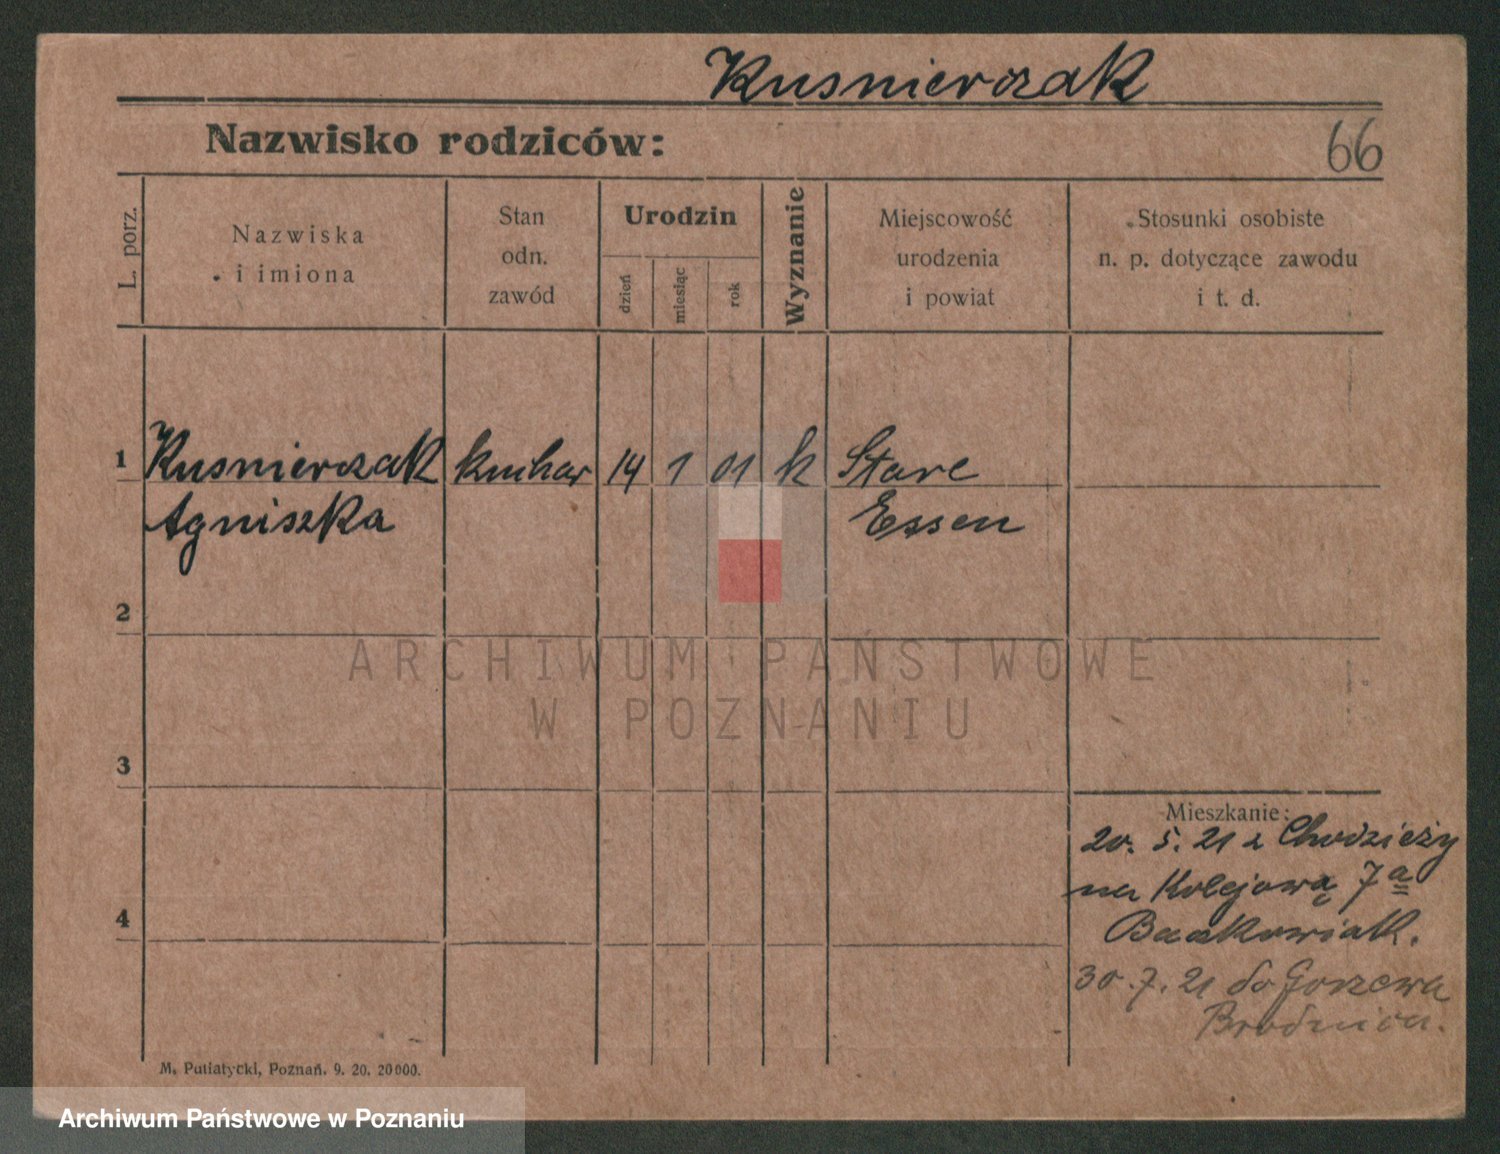 Kusnierczak
Nazwisko rodziców:
66
L. porz.
Nazwiska
i imiona
Stan
odn.
zawód
Urodzin
dzień
miesiąc
rok
Wyznanie
Miejscowość
urodzenia
i powiat
Stosunki osobiste
n. p. dotyczące zawodu
i t. d.
1 Kusnierczak kuchar 14 1 01 k Stare
Agniszka Essen
2
3
4
Mieszkanie:
20. 5. 21 z Chodzieży
na Kolejową 7a
30. 7. 21 do Gorzewa
M. Putiatycki, Poznań. 9. 20. 20000.
ARCHIWUM PAŃSTWOWE
W POZNANIU
Archiwum Państwowe w Poznaniu